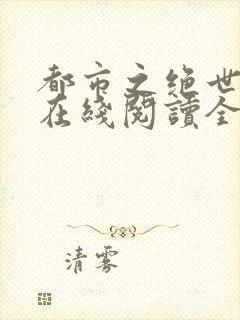 都市之绝世
在綫閱讀全
清雾